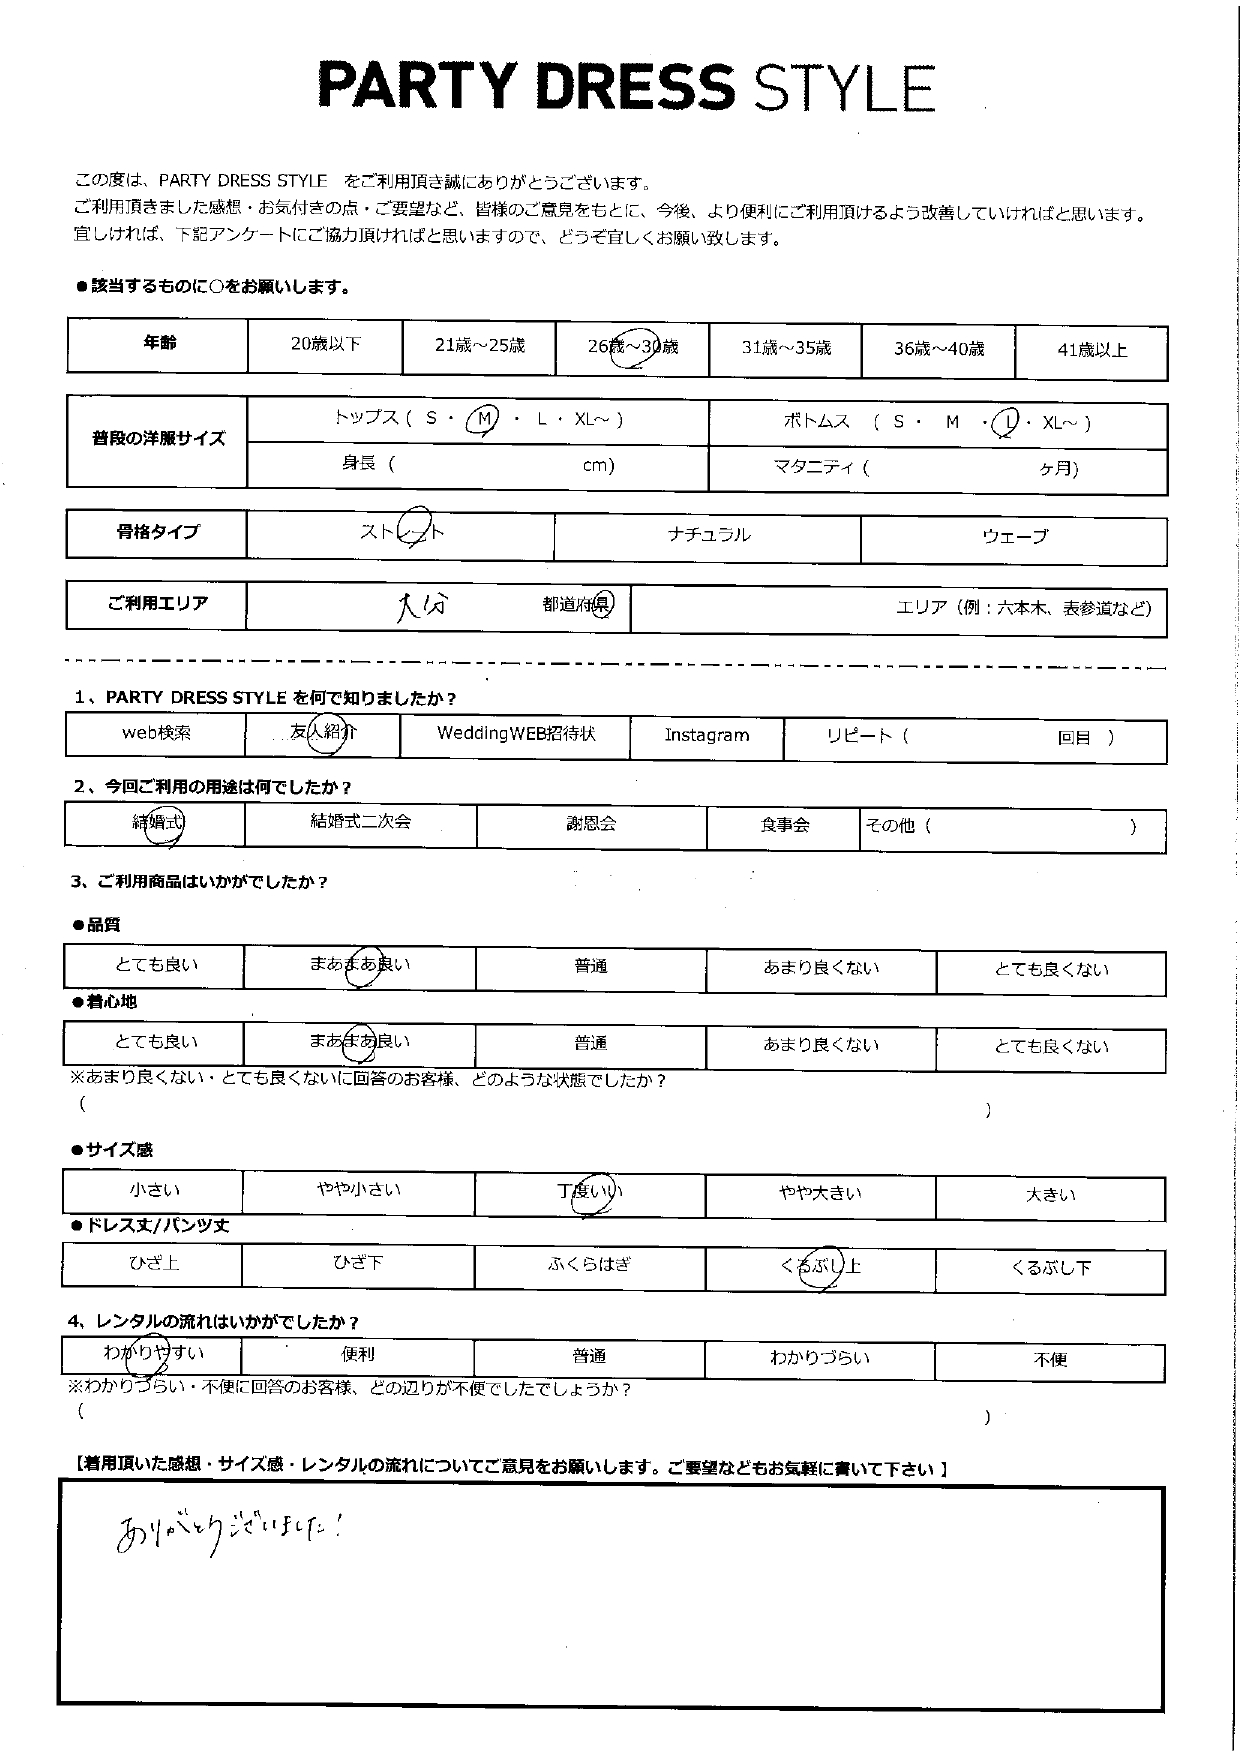 PARTY DRESS STYLE
この度は、PARTY DRESS STYLE をご利用頂き誠にありがとうございます。
ご利用頂きました感想・お気付きの点・ご要望など、皆様のご意見をもとに、今後、より便利にご利用頂けるよう改善していければと思います。
宜しければ、下記アンケートにご協力頂ければと思いますので、どうぞ宜しくお願い致します。
●該当するものに○をお願いします。
年齢 20歳以下 21歳～25歳 26歳～30歳 31歳～35歳 36歳～40歳 41歳以上
普段の洋服サイズ トップス ( S ・ M ・ L ・ XL～ ) ボトムス ( S ・ M ・ L ・ XL～ )
身長 ( cm) マタニティ ( ヶ月)
骨格タイプ ストレート ナチュラル ウェーブ
ご利用エリア 大分 都道府県 エリア（例：六本木、表参道など）
1、PARTY DRESS STYLE を何で知りましたか？
web検索 友人紹介 WeddingWEB招待状 Instagram リピート ( 回目 )
2、今回ご利用の用途は何でしたか？
結婚式 結婚式二次会 謝恩会 食事会 その他 ( )
3、ご利用商品はいかがでしたか？
●品質
とても良い まあまあ良い 普通 あまり良くない とても良くない
●着心地
とても良い まあまあ良い 普通 あまり良くない とても良くない
※あまり良くない・とても良くないに回答のお客様、どのような状態でしたか？
( )
●サイズ感
小さい やや小さい 丁度いい やや大きい 大きい
●ドレス丈/パンツ丈
ひざ上 ひざ下 ふくらはぎ くるぶし上 くるぶし下
4、レンタルの流れはいかがでしたか？
わかりやすい 便利 普通 わかりづらい 不便
※わかりづらい・不便に回答のお客様、どの辺りが不便でしたでしょうか？
( )
【着用頂いた感想・サイズ感・レンタルの流れについてご意見をお願いします。ご要望などもお気軽に書いて下さい 】
ありがとうございました！